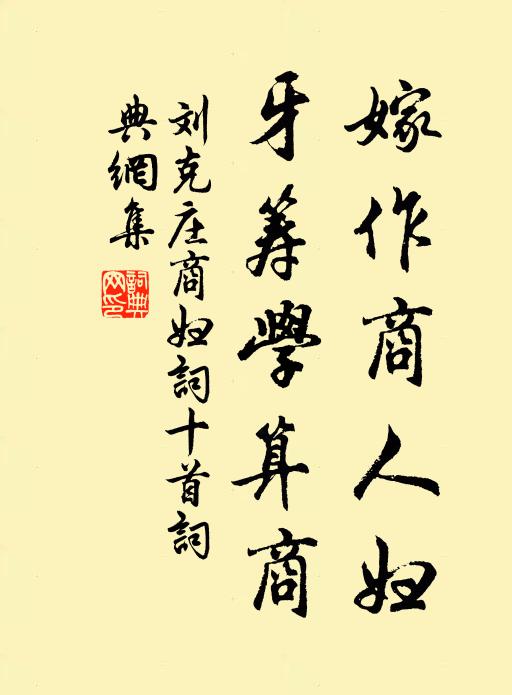 嫁作商人妇
牙筹学算商
刘克庄商妇词十首詞
典網集
詞典網印